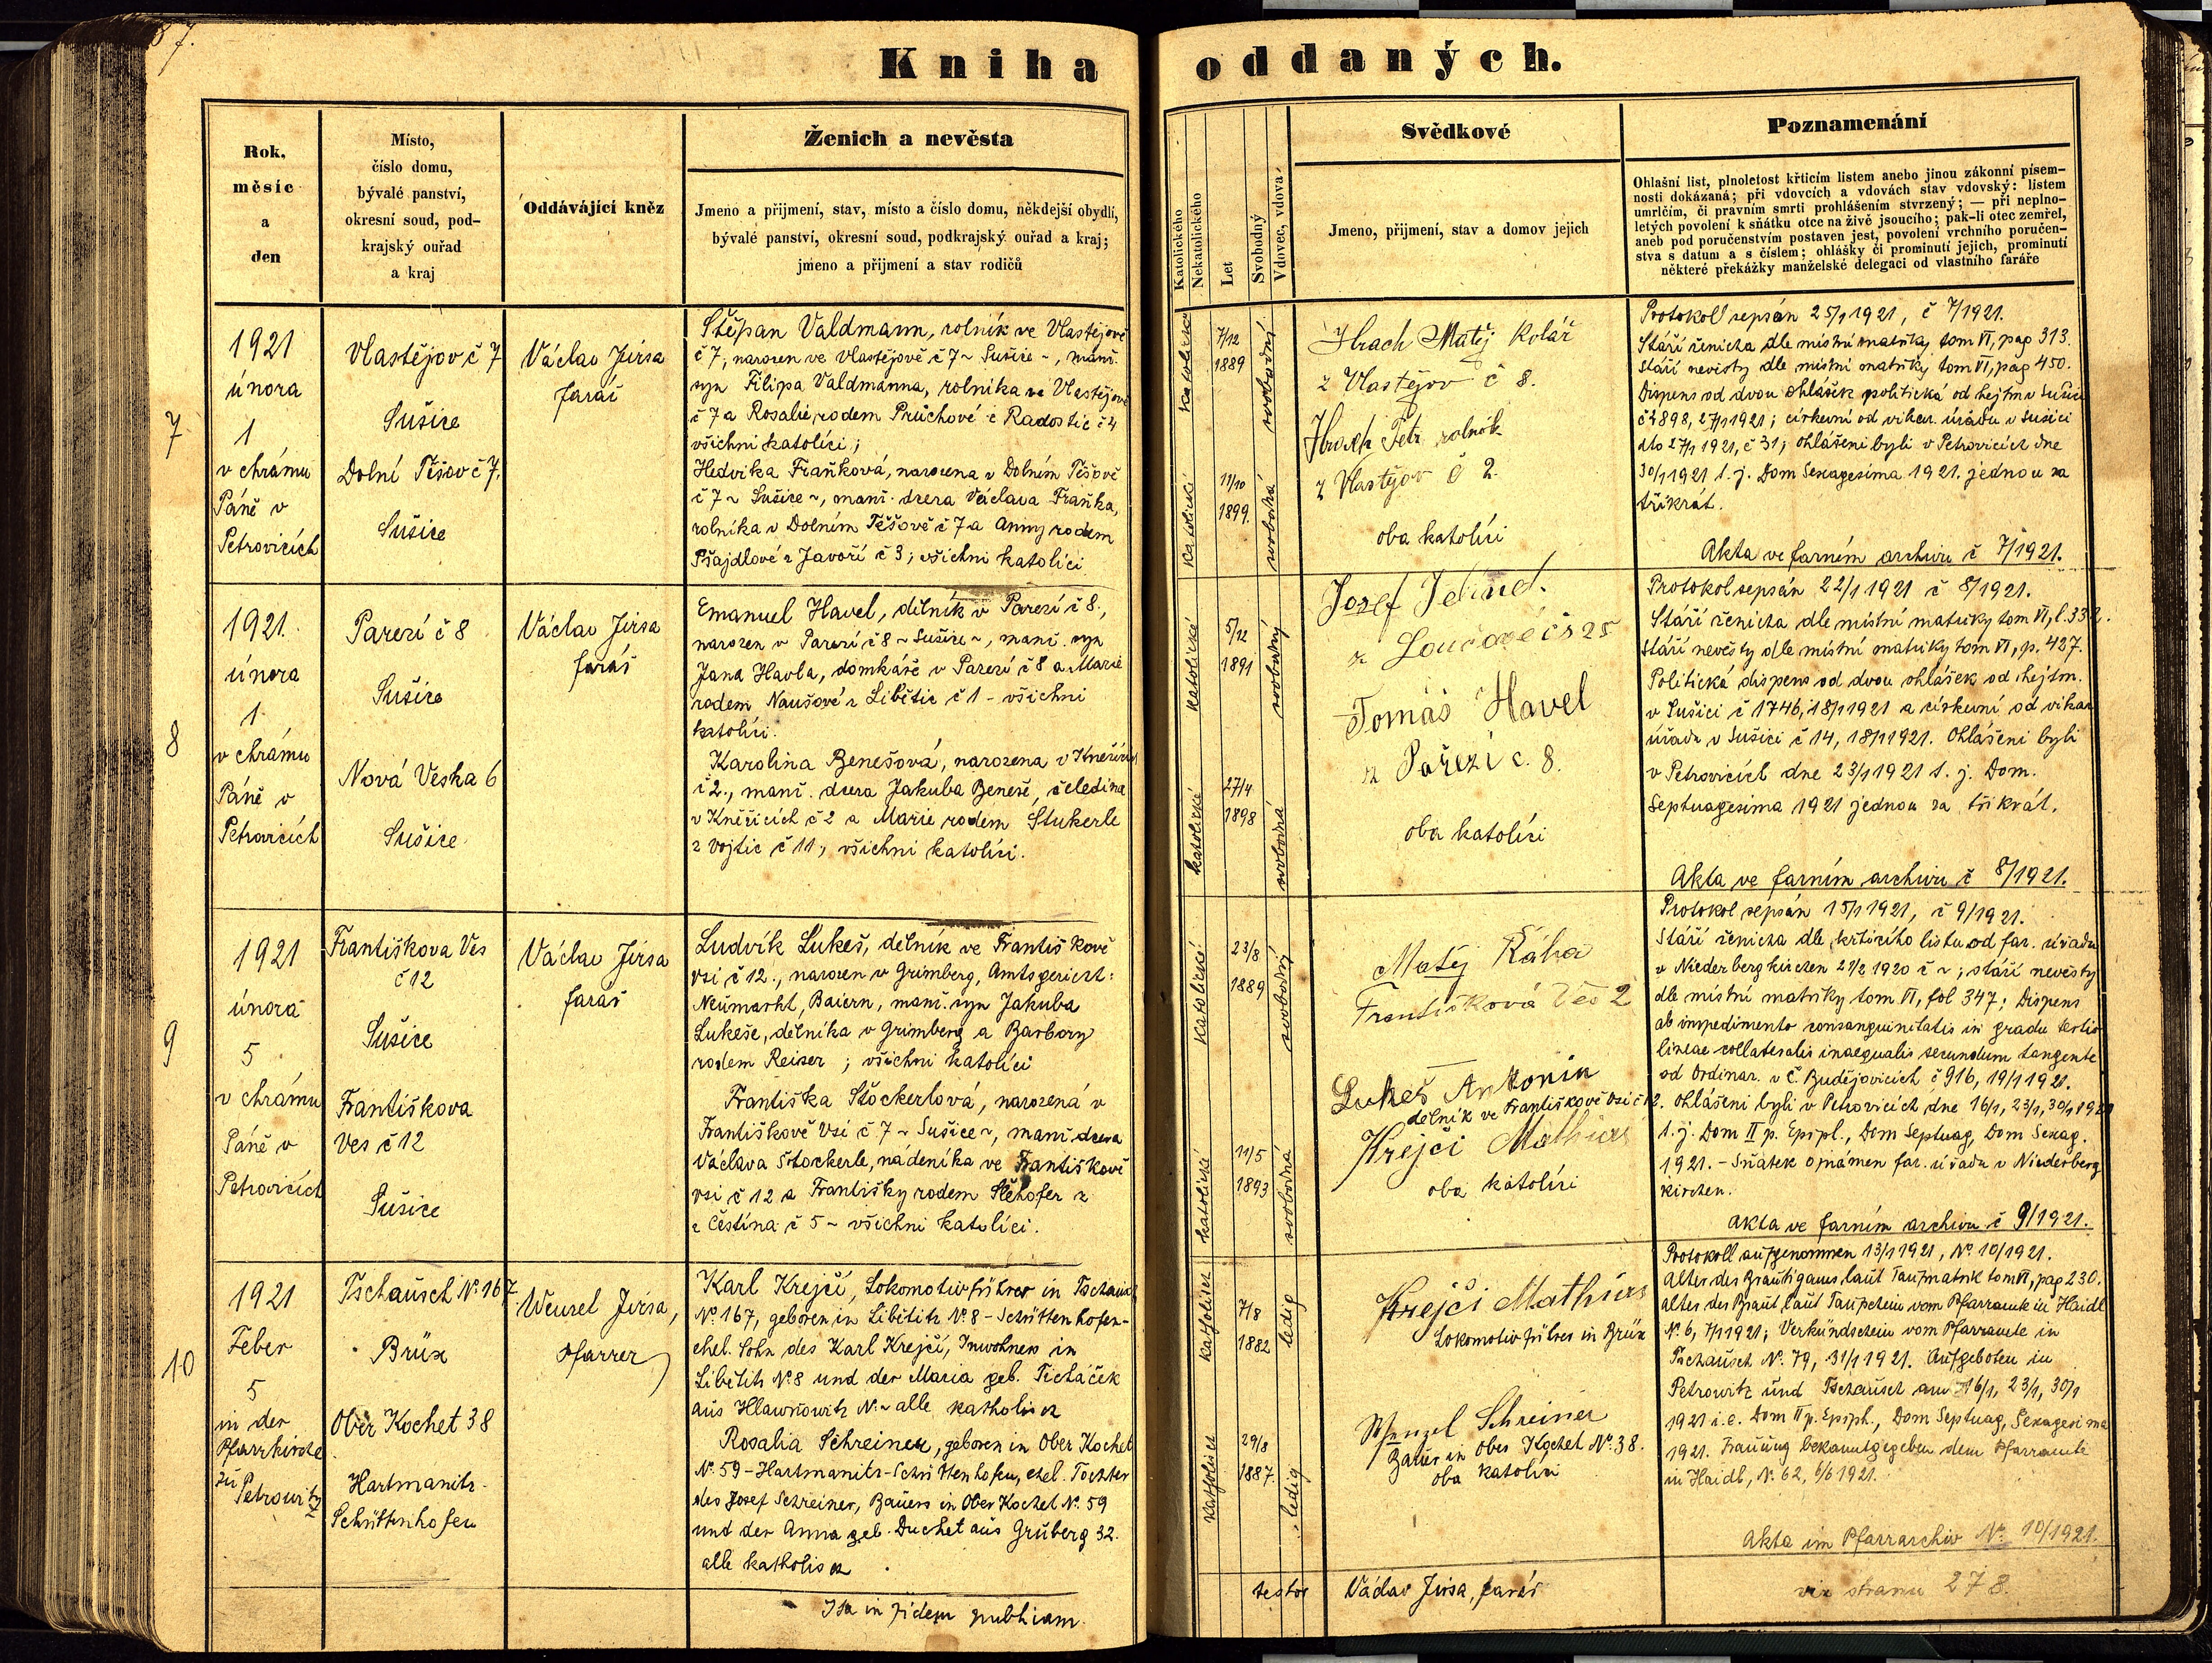 87.
Kniha oddaných.
Rok,
měsíc
a
den
Místo,
číslo domu,
bývalé panství,
okresní soud, pod-
krajský ouřad
a kraj
Oddávající kněz
Ženich a nevěsta
Jmeno a přijmení, stav, místo a číslo domu, někdejší obydlí,
bývalé panství, okresní soud, podkrajský ouřad a kraj;
jmeno a přijmení a stav rodičů
Katolického
Nekatolického
Let
Svobodný
Vdovec, vdova
Svědkové
Jmeno, přijmení, stav a domov jejich
Poznamenání
Ohlašní list, plnoletost křticím listem anebo jinou zákonní písem-
nosti dokázaná; při vdovcích a vdovách stav vdovský: listem
umrlčím, či pravním smrti prohlášením stvrzený; — při neplno-
letých povolení k sňátku otce na živě jsoucího; pak-li otec zemřel,
aneb pod poručenstvím postaven jest, povolení vrchního poručen-
stva s datum a s číslem; ohlášky či prominutí jejich, prominutí
některé překážky manželské delegací od vlastního faráře
7
1921
února
1
v chrámu
Páně v
Petrovicích
Vlastějov č 7
Sušice
Dolní Těšov č 7.
Sušice
Václav Jirsa
farář
Štěpan Valdmann, rolník ve Vlastějově
č 7, narozen ve Vlastějově č 7 ~ Sušice ~, manž.
syn Filipa Valdmanna, rolníka ve Vlastějově
č 7 a Rosalie, rodem Průchové z Radostic č 4
všichni katolíci;
Hedvika Fraňková, narozena v Dolním Těšově
č 7 ~ Sušice ~, manž. dcera Václava Fraňka,
rolníka v Dolním Těšově č 7 a Anny rodem
Pšajdlové z Javoří č 3; všichni katolíci
katolické
7/12
1889
svobodný
katolické
11/10
1899.
svobodná
Hrach Matěj Kolář
z Vlastějov č 8.
Hrach Petr rolník
z Vlastějov č 2.
oba katolíci
Protokoll sepsán 25/1 1921, č 7/1921.
Stáří ženicha dle místní matriky tom VI, pag 313.
Stáří nevěsty dle místní matriky tom VI, pag 450.
Dispens od dvou ohlášek politická od hejtm v Sušici
č 2898, 27/1 1921; církevní od vikar. úřadu v Sušici
dto 27/1 1921, č 31; ohlášeni byli v Petrovicích dne
30/1 1921 t. j. Dom Sexagesima 1921. jednou za
třikrát.
Akta ve farním archivu č 7/1921.
8
1921.
února
1.
v chrámu
Páně v
Petrovicích
Parezí č 8
Sušice
Nová Veska 6
Sušice
Václav Jirsa
farář
Emanuel Havel, dělník v Parezí č 8,
narozen v Parezí č 8 ~ Sušice ~, manž. syn
Jana Havla, domkáře v Parezí č 8 a Marie
rodem Naušové z Libětic č 1 - všichni
katolíci.
Karolina Benešová, narozena v Kněžicích
č 2., manž. dcera Jakuba Beneše, čeledína
v Kněžicích č 2 a Marie rodem Stukerle
z Vojtic č 11, všichni katolíci.
katolické
5/12
1891
svobodný
katolické
27/4
1898
svobodná
Josef
z Loučové čs 25
Tomáš Havel
z Pařezí č. 8.
oba katolíci
Protokol sepsán 22/1 1921 č 8/1921.
Stáří ženicha dle místní matriky tom VI, f. 332.
Stáří nevěsty dle místní matriky tom VI, p. 427.
Politická dispens od dvou ohlášek od hejtm.
v Sušici č 1746, 18/1 1921 a církevní od vikar.
úřadu v Sušici č 14, 18/1 1921. Ohlášeni byli
v Petrovicích dne 23/1 1921 t. j. Dom.
Septuagesima 1921 jednou za třikrát.
Akta ve farním archivu č 8/1921.
9
1921
února
5
v chrámu
Páně v
Petrovicích
Františkova Ves
č 12
Sušice
Františkova
Ves č 12
Sušice
Václav Jirsa
farář
Ludvík Lukeš, dělník ve Františkově
vsi č 12., narozen v Grimberg, Amtsgericht:
Neumarkt, Baiern, manž. syn Jakuba
Lukeše, dělníka v Grimberg a Barbory
rodem Reiser; všichni katolíci
Františka Stöckerlová, narozená v
Františkově Vsi č 7 ~ Sušice ~, manž dcera
Václava Stockerle, nádeníka ve Františkově
vsi č 12 a Františky rodem Slehofer z
z Čestína č 5 ~ všichni katolíci.
katolické
23/8
1889
svobodný
katolické
11/5
1893
svobodná
Matěj Kába
Františková Ves 2
Lukeš Antonín
dělník ve Františkově vsi č 12.
Krejčí Mathias
oba katolíci
Protokol sepsán 15/1 1921, č 9/1921.
Stáří ženicha dle křticího listu od far. úřadu
v Niederbergkirchen 21/2 1920 č ~; stáří nevěsty
dle místní matriky tom VI, fol 347; Dispens
ab impedimento consanguinitatis in gradu tertio
lineae collateralis inaequalis secundum tangente
od Ordinar. v Č. Budějovicích č 916, 19/1 1921.
Ohlášeni byli v Petrovicích dne 16/1, 23/1, 30/1 1921
t. j. Dom II p. Epipl., Dom Septuag, Dom Sexag.
1921. - Sňatek oznámen far. úřadu v Niederberg
kirchen.
Akta ve farním archivu č 9/1921.
10
1921
Feber
5
in der
Pfarrkirche
zu
Petrowitz
Tschausch No 167
Brüx
Ober Kochet 38
Hartmanitz
Schüttenhofen
Wenzel Jirsa,
Pfarrer
Karl Krejčí, Lokomotivführer in Tschausch
No 167, geboren in Libětitz No 8 - Schüttenhofen -
ehel. Sohn des Karl Krejčí, Inwohners in
Libětitz No 8 und der Maria geb. Ticháček
aus Hlawňowitz No ~ alle katholisch
Rosalia Schreiner, geboren in Ober Kochet
No 59 - Hartmanitz - Schüttenhofen, ehel. Tochter
des Josef Schreiner, Bauers in Ober Kochet No 59
und der Anna geb. Duchet aus Grüberg 32.
alle katholisch
katholisch
7/8
1882
ledig
katholisch
29/8
1887.
ledig
Krejčí Mathias
Lokomotivführer in Brüx
Wenzel Schreiner
Bauer in Ober Kochet No 38.
oba katolíci
Protokoll aufgenommen 13/1 1921, No 10/1921.
Alter des Bräutigams laut Taufmatrik tom VI, pag 230.
Alter der Braut laut Taufschein vom Pfarramte in Haidl
No 6, 7/1 1921; Verkündschein vom Pfarramte in
Tschausch No 79, 31/1 1921. Aufgeboten in
Petrowitz und Tschausch am 16/1, 23/1, 30/1
1921 i. e. Dom II p. Epiph., Dom Septuag, Sexagesima
1921. Trauung bekanntgegeben dem Pfarramte
in Haidl, No 62, 6/6 1921.
Akta im Pfarrarchiv No 10/1921.
Ita in fidem
testor Václav Jirsa, farář
viz stranu 278.